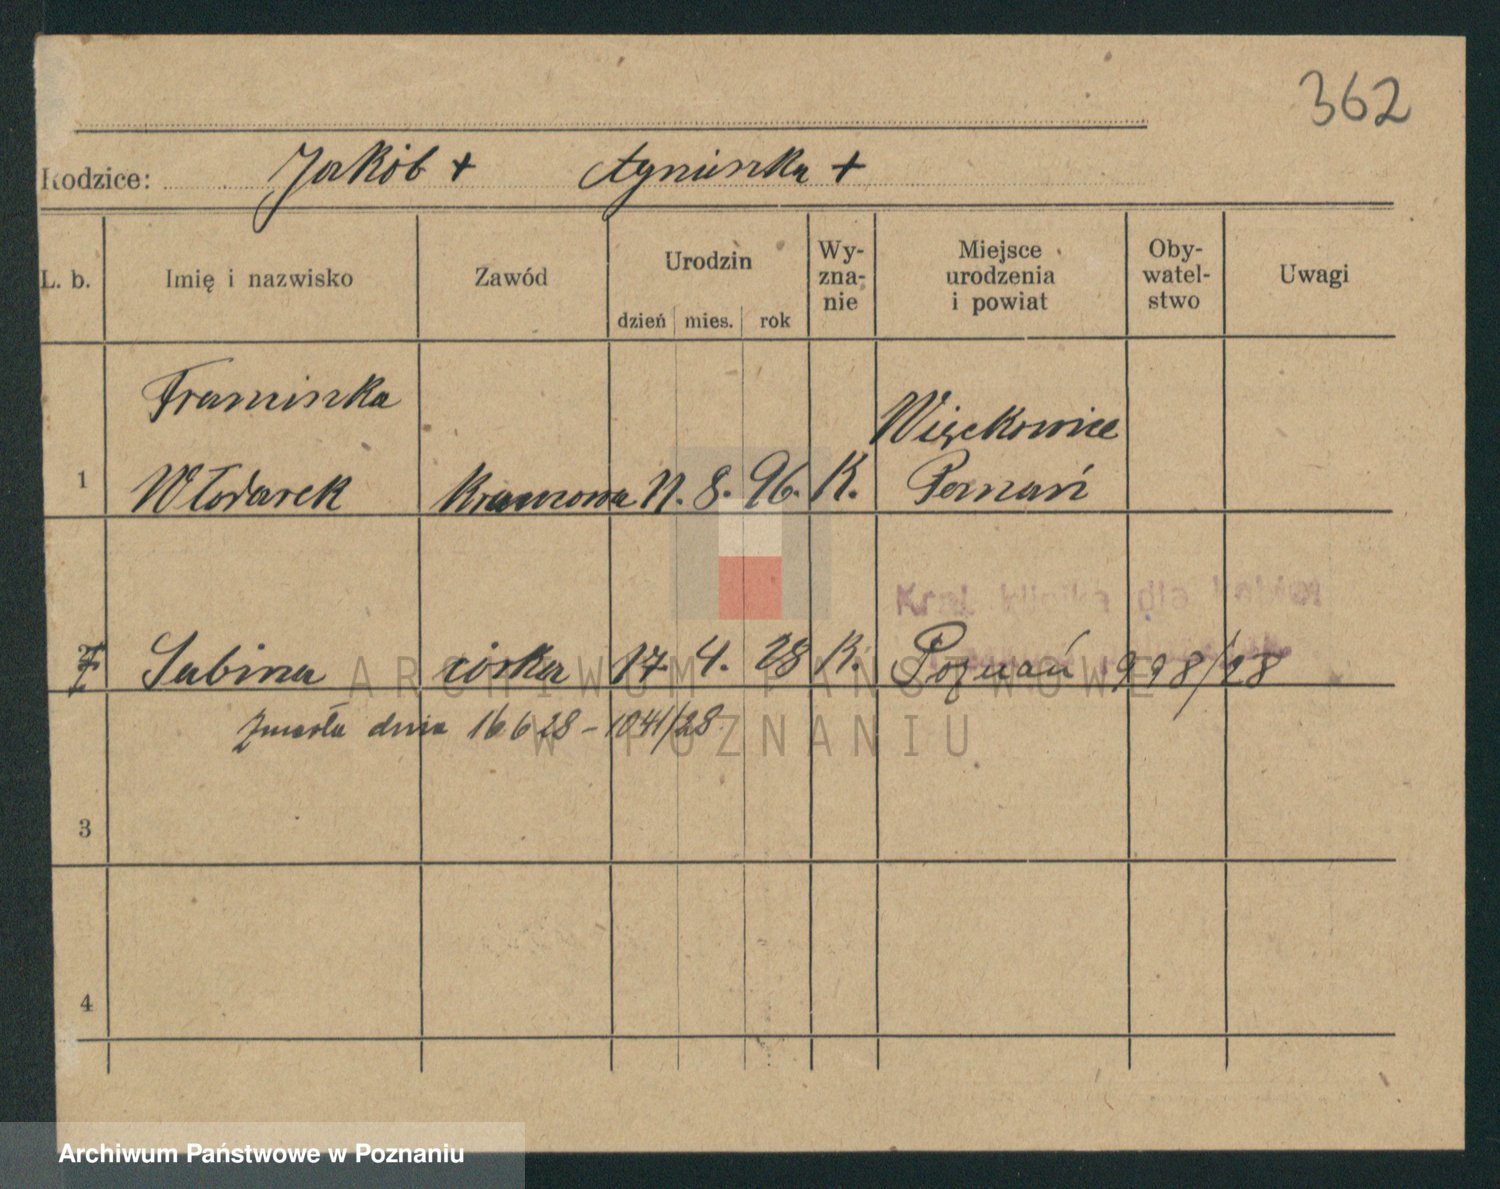 362
Rodzice: Jakób + Agnieszka +
L. b. Imię i nazwisko Zawód Urodzin dzień mies. rok Wy-zna-nie Miejsce urodzenia i powiat Oby-watel-stwo Uwagi
Franciszka
Więckowice
1 Włodarek Krawcowa 11. 8. 96. K. Poznań
Kraj. klinika dla kobiet
Sabina córka 17 4. 28 K. Poznań 998/28
zmarła dnia 16 6 28 – 1041/28
3
4
ARCHIWUM PAŃSTWOWE
W POZNANIU
Archiwum Państwowe w Poznaniu